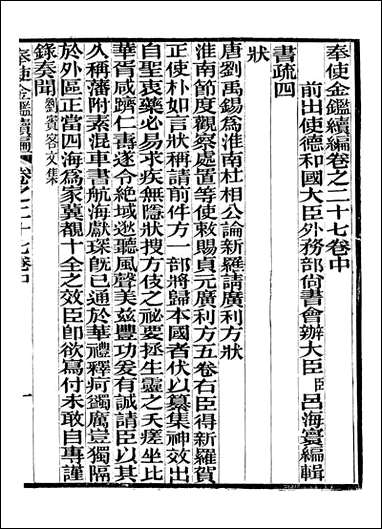 奉使金鑑續編卷之二十七卷中
前出使德和國大臣外務部尙書會辦大臣臣呂海寰編輯
書疏四
狀
唐劉禹錫爲淮南杜相公論新羅請廣利方狀
淮南節度觀察處置等使敕賜貞元廣利方五卷右臣得新羅賀
正使朴如言狀稱請前件方一部將歸本國者伏以纂集神效出
自聖衷藥必易求疾無隱狀搜方伎之祕要拯生靈之夭瘥坐比
華胥咸躋仁壽遂令絶域逖聽風聲美茲豐功爰有誠請臣以其
久稱藩附素混車書航海獻琛旣已通於華禮釋疴蠲厲豈獨隔
於外區正當四海爲家冀覩十全之效臣卽欲寫付未敢自專謹
錄奏聞劉賓客文集
奉使金鑑續編 卷之二十七卷中 一